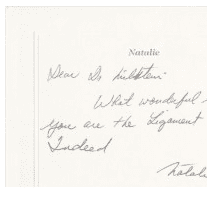 Natalie
Dear Dr
What wonderful
you are the Ligament
Indeed
Natali